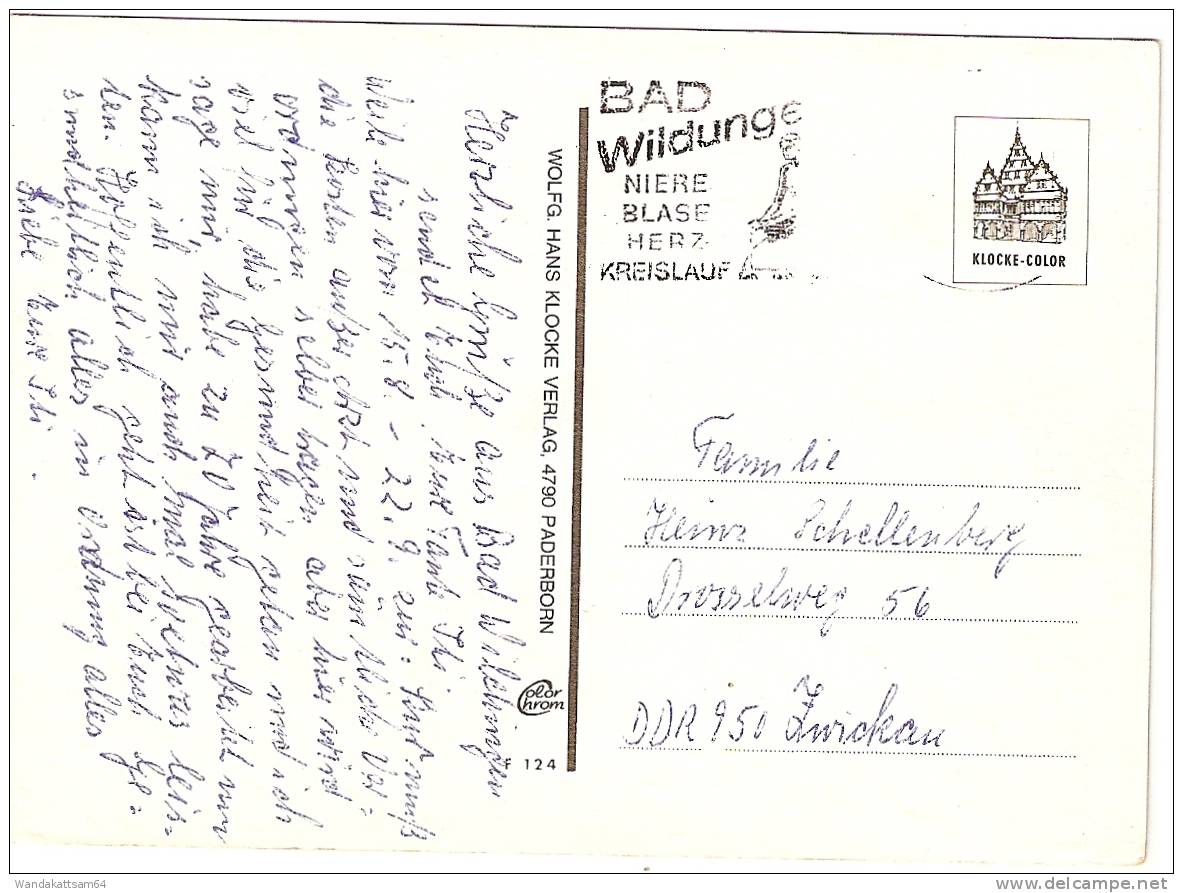 Herzliche Grüße aus Bad Wildungen
sendet Euch Eure Tante Ili.
Weile hier vom 15.8. - 22.9. zur Kur. muß
die Kosten außer Arzt und sämtliche Ver=
ordnungen selber tragen. aber hier wird
viel für die Gesundheit getan und ich
sage mir, habe zu 20 Jahre gearbeitet nun
kann ich mir auch mal etwas leis-
ten. Hoffentlich geht es bei Euch ge=
sundheitlich alles in Ordnung alles
Liebe Eure Ili.
WOLFG. HANS KLOCKE VERLAG, 4790 PADERBORN
Color
Chrom
F 124
BAD
Wildunge
NIERE
BLASE
HERZ-
KREISLAUF
KLOCKE-COLOR
Familie
Heinz Schellenberg
Drosselweg 56
DDR 950 Zwickau
Wandakattsam64
delcampe.net